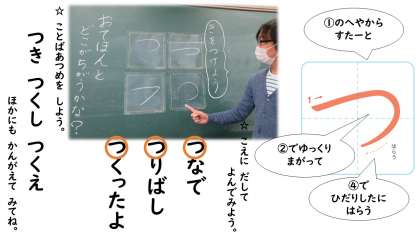 ①のへやから
すたーと
1
②でゆっくり
まがって
はらう
④で
ひだりしたに
はらう
つをつけよう
つ
つ
つ
つ
おてほんと
どこがちがうかな?
☆ こえに だして
よんでみよう。
つなで
つりばし
つくったよ
☆ ことばあつめを しよう。
つき つくし つくえ
ほかにも かんがえて みてね。